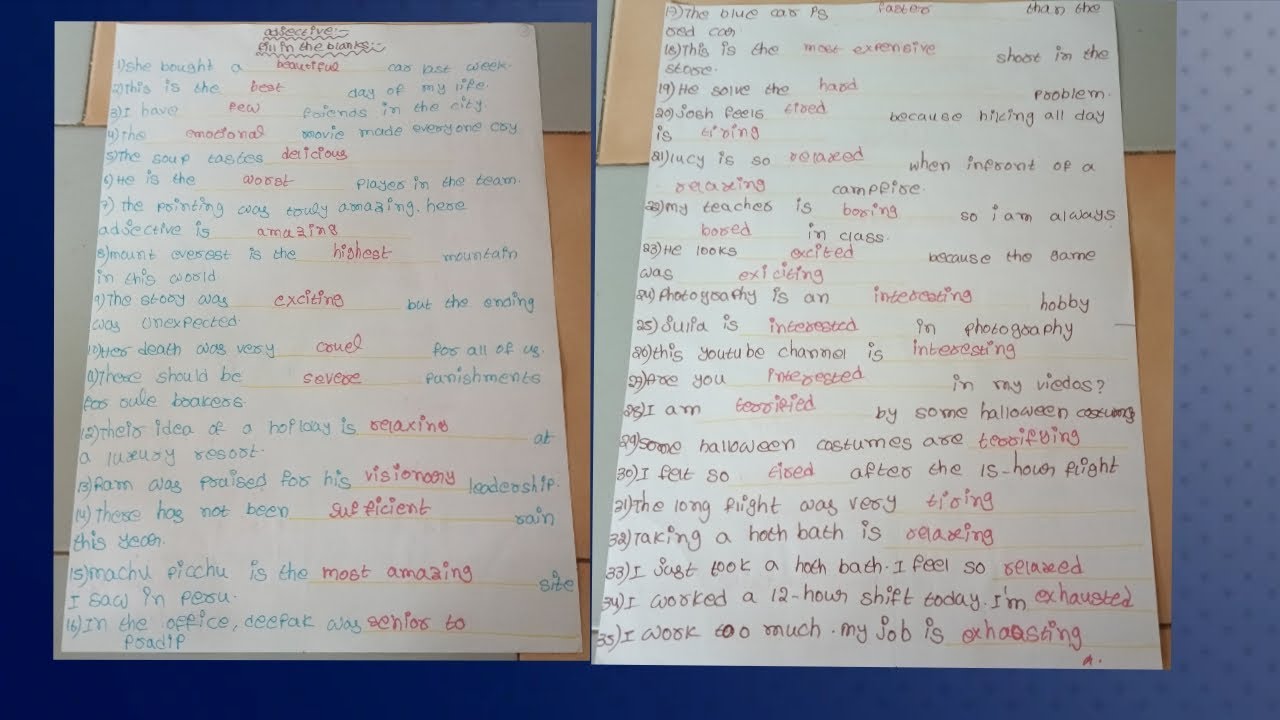 adjective:-
fill in the blanks:-
1) she bought a beautiful car last week.
2) This is the best day of my life.
3) I have few friends in the city.
4) The emotional movie made everyone cry
5) The soup tastes delicious
6) He is the worst player in the team.
7) The printing was truly amazing. here
adjective is amazing
8) mount everest is the highest mountain
in this world
9) The story was exciting but the ending
was unexpected.
10) Her death was very cruel for all of us.
11) There should be severe punishments
for rule breakers
12) Their idea of a holiday is relaxing at
a luxury resort.
13) Ram was praised for his visionary leadership.
14) There has not been sufficient rain
this year.
15) machu picchu is the most amazing site
I saw in Peru.
16) In the office, deepak was senior to
pradip
17) The blue car is faster than the
red car
18) This is the most expensive short in the
store.
19) He solve the hard problem.
20) Josh feels tired because hiking all day
is tiring
21) lucy is so relaxed when infront of a
relaxing campfire.
22) my teacher is boring so i am always
bored in class.
23) He looks excited because the game
was exiciting
24) Photography is an interesting hobby
25) Julia is interested in photography
26) this youtube channel is interesting
27) Are you interested in my viedos?
28) I am terrified by some halloween costums
29) some halloween costumes are terrifying
30) I felt so tired after the 15-hour flight
31) The long flight was very tiring
32) Taking a hoth bath is relaxing
33) I just took a hoth bath. I feel so relaxed
34) I worked a 12-hour shift today. I'm exhausted
35) I work too much. my job is exhausting